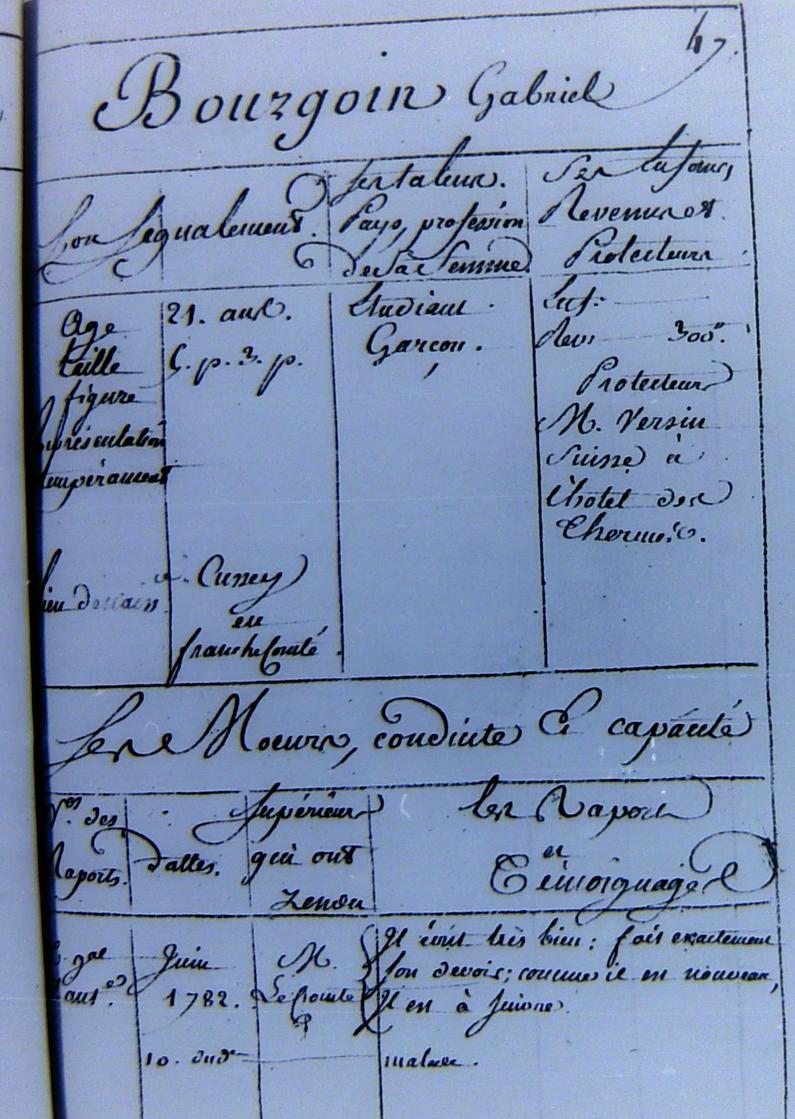 47.
Bourgoin Gabriel
Son Segnalement.
Ses talens.
Pays, profession
de sa Femme
Ses Enfans,
Revenus et
Protecteurs
Age
21. ans.
taille
5. p. 3. p.
figure
représentation
tempérament
Lieu de naiss.
à Cussey
en
franche Comté.
Etudiant.
Garçon.
Enf.
Rev. 300.
Protecteur
M. Versin
Suisse à
l'hotel des
Ses Moeurs, conduite & capacité
Nos. des
Raports.
dattes.
Supérieur
qui ont
rendu
Les Raports
et
Témoignages
Juin
1782.
M.
Le Comte
Il écrit très bien: fait exactement
son devoir; comme il est nouveau,
Il est à suivre.
10. dud.
malade.